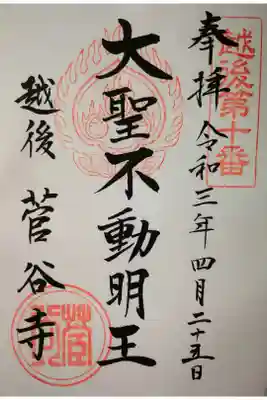 越後第十番
奉拝 令和三年四月二十五日
大聖不動明王
越後 菅谷寺